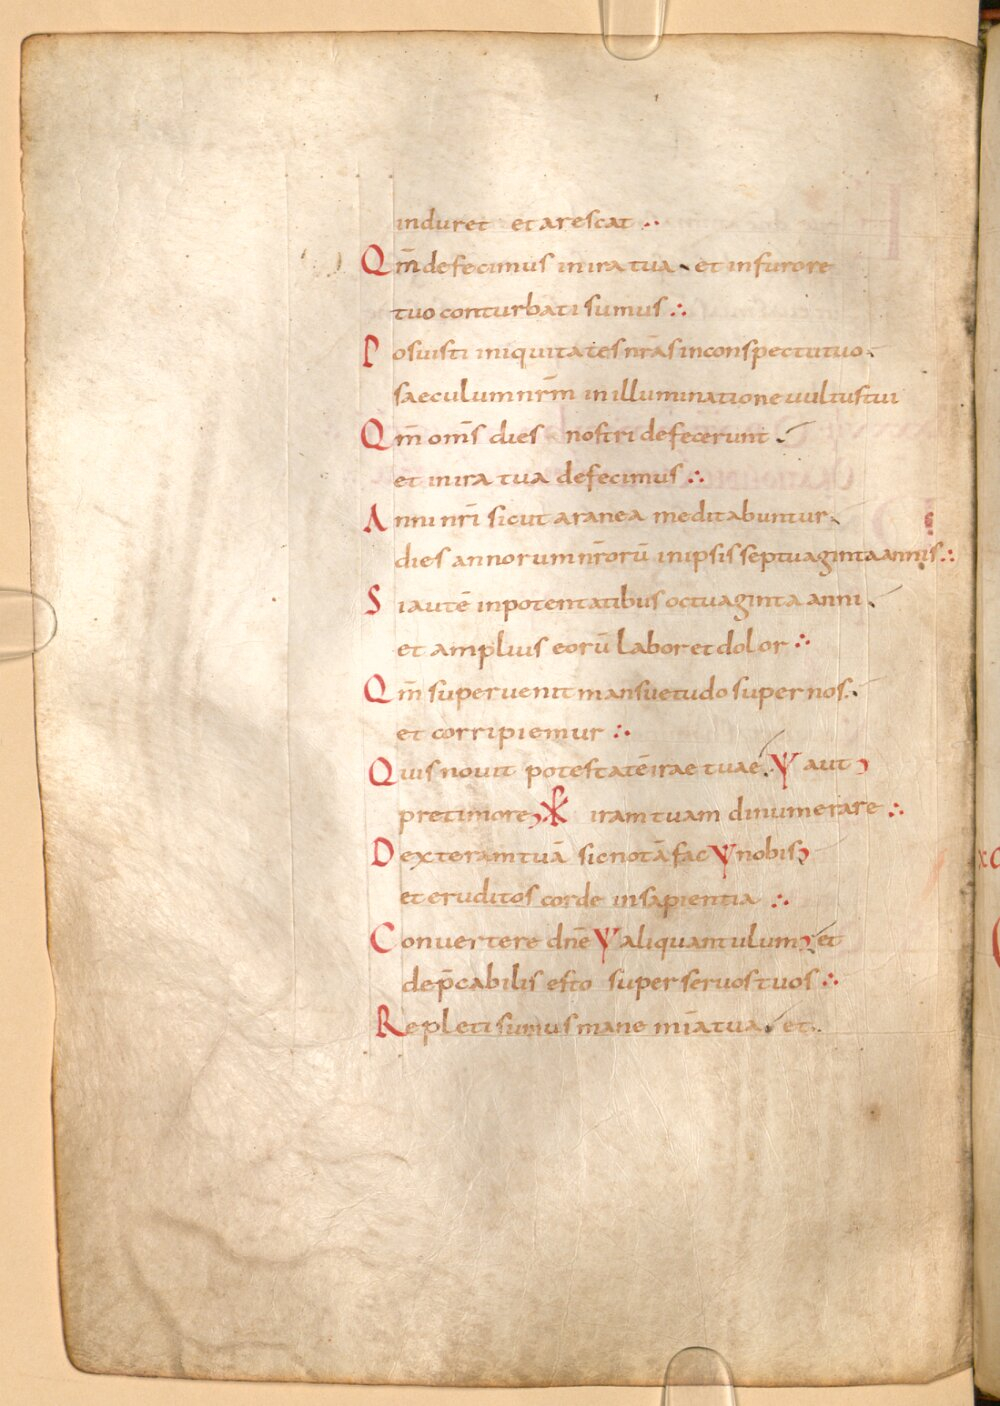 induret et arescat ∴
Qm̄ defecimus in ira tua et in furore
tuo conturbati sumus ∴
Posuisti iniquitates nr̄as in conspectu tuo
saeculum nr̄m in illuminatione uultus tui
Qm̄ om̄s dies nostri defecerunt
et in ira tua defecimus ∴
Anni nr̄i sicut aranea meditabuntur
dies annorum nr̄orū in ipsis septuaginta annis ∴
Si autē in potentatibus octuaginta anni
et amplius eorū labor et dolor ∴
Qm̄ superuenit mansuetudo super nos
et corripiemur ∴
Quis nouit potestatē irae tuae Ψ aut
pre timore iram tuam dinumerare ∴
Dexteram tuā sic notā fac Ψ nobis
et eruditos corde in sapientia ∴
Conuertere dn̄e Ψ aliquantulum et
dep̄cabilis esto super seruos tuos ∴
Repleti sumus mane mīa tua et